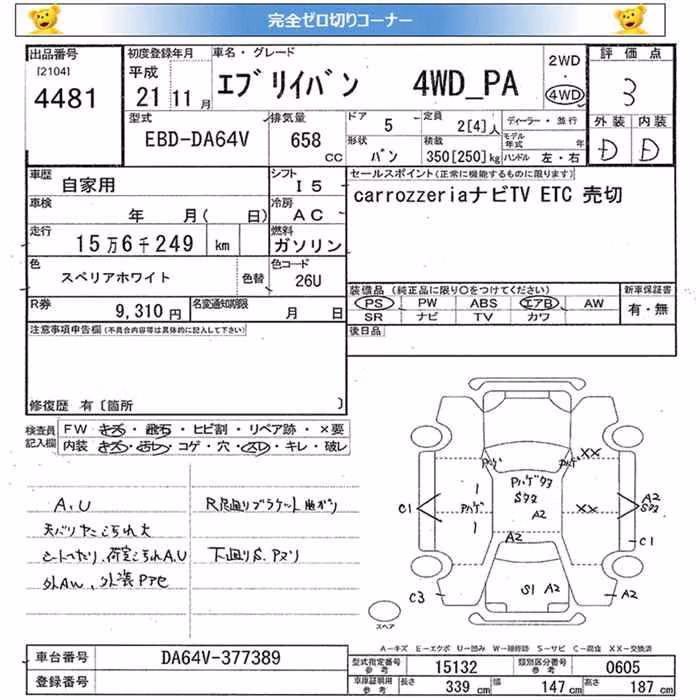 完全ゼロ切りコーナー
出品番号
[2104]
4481
初度登録年月
平成
21 11月
車名・グレード
エブリイバン 4WD_PA
2WD
・
4WD
評価点
3
外装 内装
D D
型式
EBD-DA64V
排気量
658
CC
ドア
5
定員
2[4]人
ディーラー・並行
形状
バン
積載
350[250]kg
モデル年式 年
ハンドル 左・右
車歴
自家用
シフト
I5
車検
年 月( 日)
冷房
AC
走行
15万6千249 km
燃料
ガソリン
色
スペリアホワイト
色替
色コード
26U
R券
9,310円
名変通知期限
月 日
セールスポイント(正常に機能するものに限ります)
carrozzeriaナビTV ETC 売切
装備品(純正品に限り〇をつけてください)
新車保証書
PS PW ABS エアB AW
有・無
SR ナビ TV カワ
後日品
注意事項申告欄(不具合内容等は具体的に記入して下さい)
修復歴 有〔箇所 〕
検査員
記入欄
FW キズ・飛石・ヒビ割・リペア跡・×要
内装 キズ・汚レ・コゲ・穴・スレ・キレ・破レ
A,U
天バリヤニこられ大
シートへたり、荷室こられA.U
外AW、外装Pアセ
R足廻りブラケット曲がり
下廻りS,Pヌリ
XX
C1
A2
XX
A2
C1
A2
C3
S1 A2
A2
スペア
A-キズ E-エクボ U-凹み W-補修跡 S-サビ C-腐食 XX-交換済
車台番号
DA64V-377389
登録番号
型式指定番号
参考
15132
類別区分番号
参考
0605
車庫証明用
参考
長さ 339cm 幅 147cm 高さ 187cm